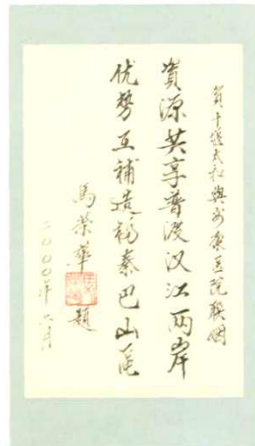 贺十堰太和与安康医院联姻
资源共享普渡汉江两岸
优势互补造福秦巴山区
馬荣華 题
二〇〇〇年六月